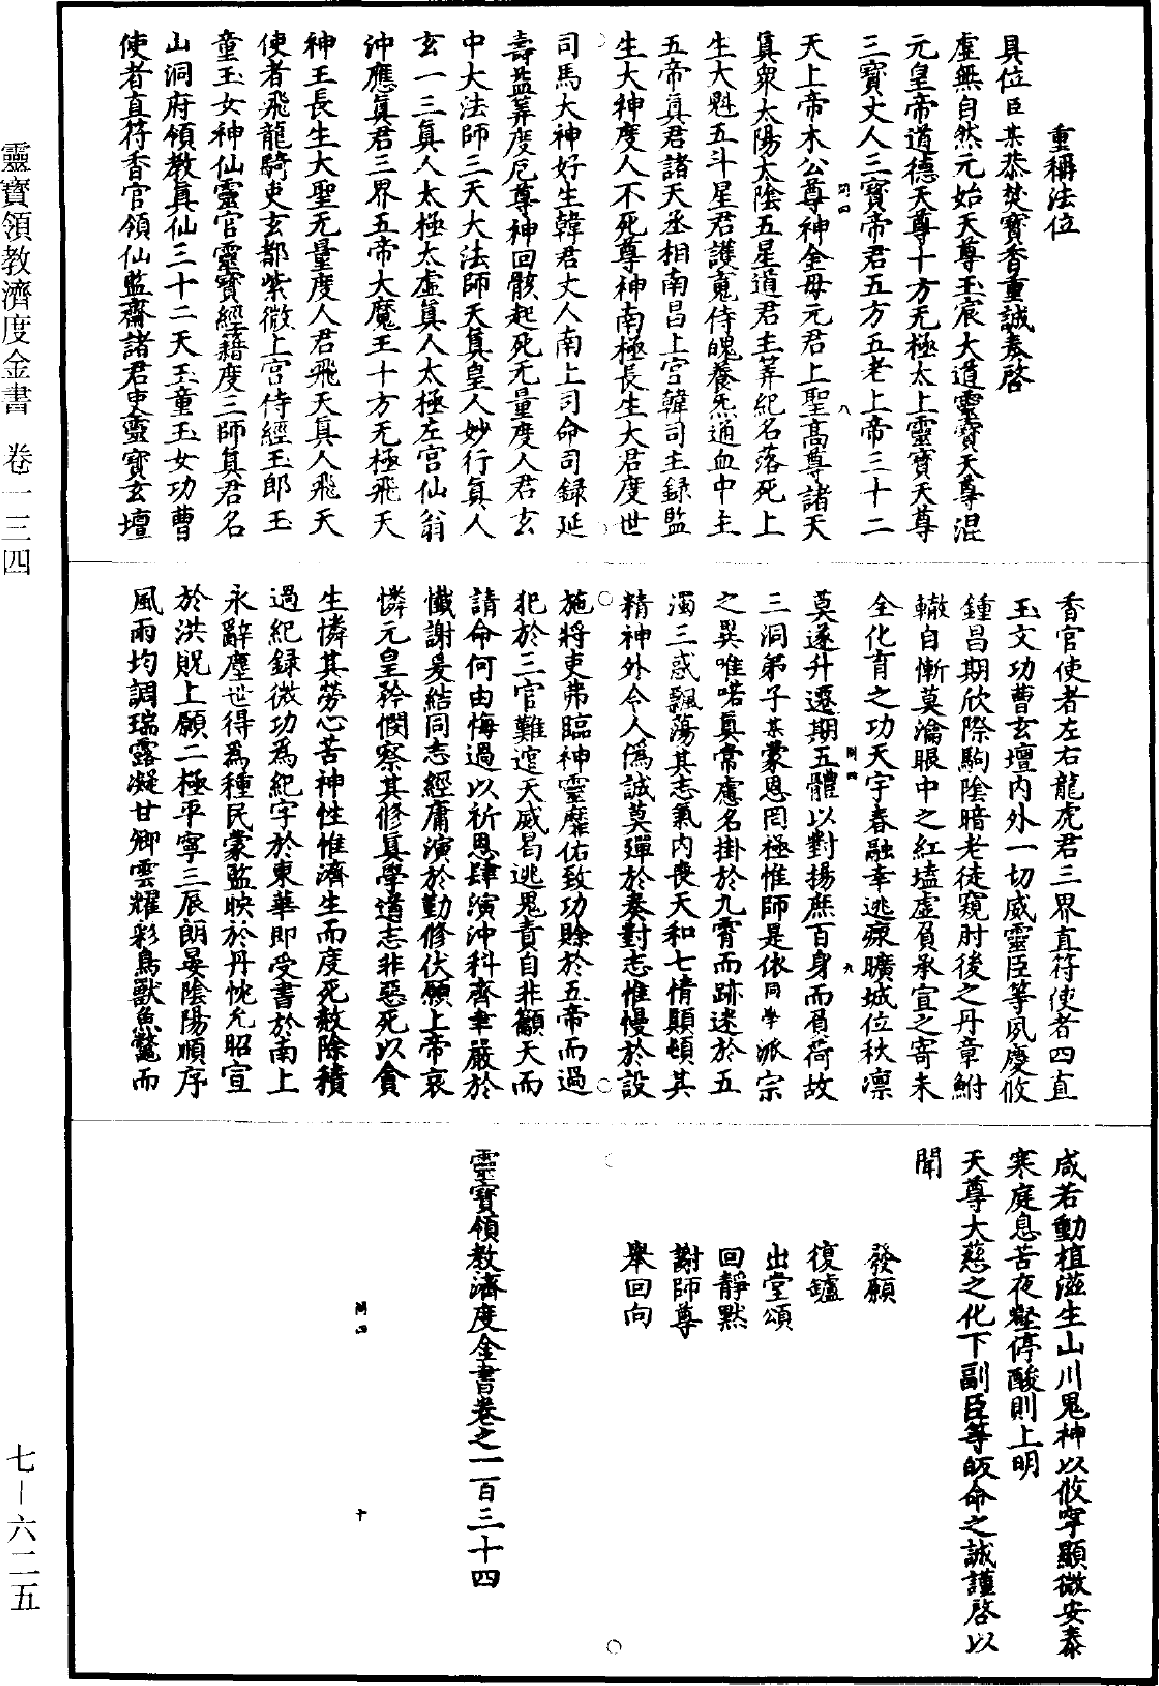 靈寶領教濟度金書 卷一三四
七-六二五
重稱法位
具位臣某恭焚寶香重誠奏啓
虛無自然元始天尊玉宸大道靈寶天尊混
元皇帝道德天尊十方无極太上靈寶天尊
三寶丈人三寶帝君五方五老上帝三十二
天上帝木公尊神金母元君上聖高尊諸天
眞衆太陽太陰五星道君主筭紀名落死上
生大魁五斗星君護䰟侍魄養炁通血中主
五帝眞君諸天丞相南昌上宮韓司主録監
生大神度人不死尊神南極長生大君度世
司馬大神好生韓君丈人南上司命司録延
壽益筭度厄尊神回骸起死无量度人君玄
中大法師三天大法師天眞皇人妙行眞人
玄一三眞人太極太虛眞人太極左宮仙翁
沖應眞君三界五帝大魔王十方无極飛天
神王長生大聖无量度人君飛天眞人飛天
使者飛龍騎吏玄都紫微上宮侍經玉郎玉
童玉女神仙靈官靈寶經籍度三師眞君名
山洞府領教眞仙三十二天玉童玉女功曹
使者直符香官領仙監齋諸君吏靈寶玄壇
香官使者左右龍虎君三界直符使者四直
玉文功曹玄壇內外一切威靈臣等夙慶攸
鍾昌期欣際駒陰暗老徒窺肘後之丹章鮒
轍自慚莫瀹眼中之紅壒虛負承宣之寄未
全化育之功天宇春融幸逃瘝曠城位秋凛
莫遂升遷期五體以對揚庶百身而負荷故
三洞弟子某蒙恩罔極惟師是依同學派宗
之異唯喏眞常慮名掛於九霄而跡迷於五
濁三惑飄蕩其志氣內喪天和七情顛頓其
精神外令人僞誠莫殫於奏對志惟慢於設
施將吏弗臨神靈靡佑致功賒於五帝而過
犯於三官難逭天威曷逃鬼責自非籲天而
請命何由悔過以祈恩肆演沖科齋聿嚴於
懺謝爰結同志經庸演於勤修伏願上帝哀
憐元皇矜憫察其修眞學道志非惡死以貪
生憐其勞心苦神性惟濟生而度死赦除積
過紀録微功爲紀字於東華即受書於南上
永辭塵世得爲種民蒙監映於丹忱允昭宣
於洪貺上願二極平寧三辰朗晏陰陽順序
風雨均調瑞露凝甘卿雲耀彩鳥獸魚鱉而
咸若動植滋生山川鬼神以攸寧顯微安泰
寒庭息苦夜壑停酸則上明
天尊大慈之化下副臣等皈命之誠謹啓以
聞
發願
復鑪
出堂頌
回靜默
謝師尊
舉回向
靈寶領教濟度金書卷之一百三十四